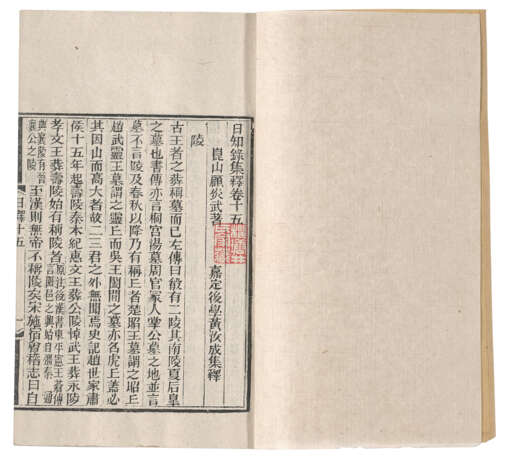 日知錄集釋卷十五
崑山顧炎武著 嘉定後學黃汝成集釋
陵
古王者之葬稱墓而已左傳曰殽有二陵其南陵夏后皋
之墓也書傳亦言桐宮湯墓周官冢人掌公墓之地並言
墓不言陵及春秋以降乃有稱丘者楚昭王墓謂之昭丘
趙武靈王墓謂之靈丘而吳王闔閭之墓亦名虎丘蓋必
其因山而高大者故二三君之外無聞焉史記趙世家肅
侯十五年起壽陵秦本紀惠文王葬公陵悼武王葬永陵
孝文王葬壽陵始有稱陵者
至漢則無帝不稱陵矣宋施宿會稽志曰自
日釋十五
一